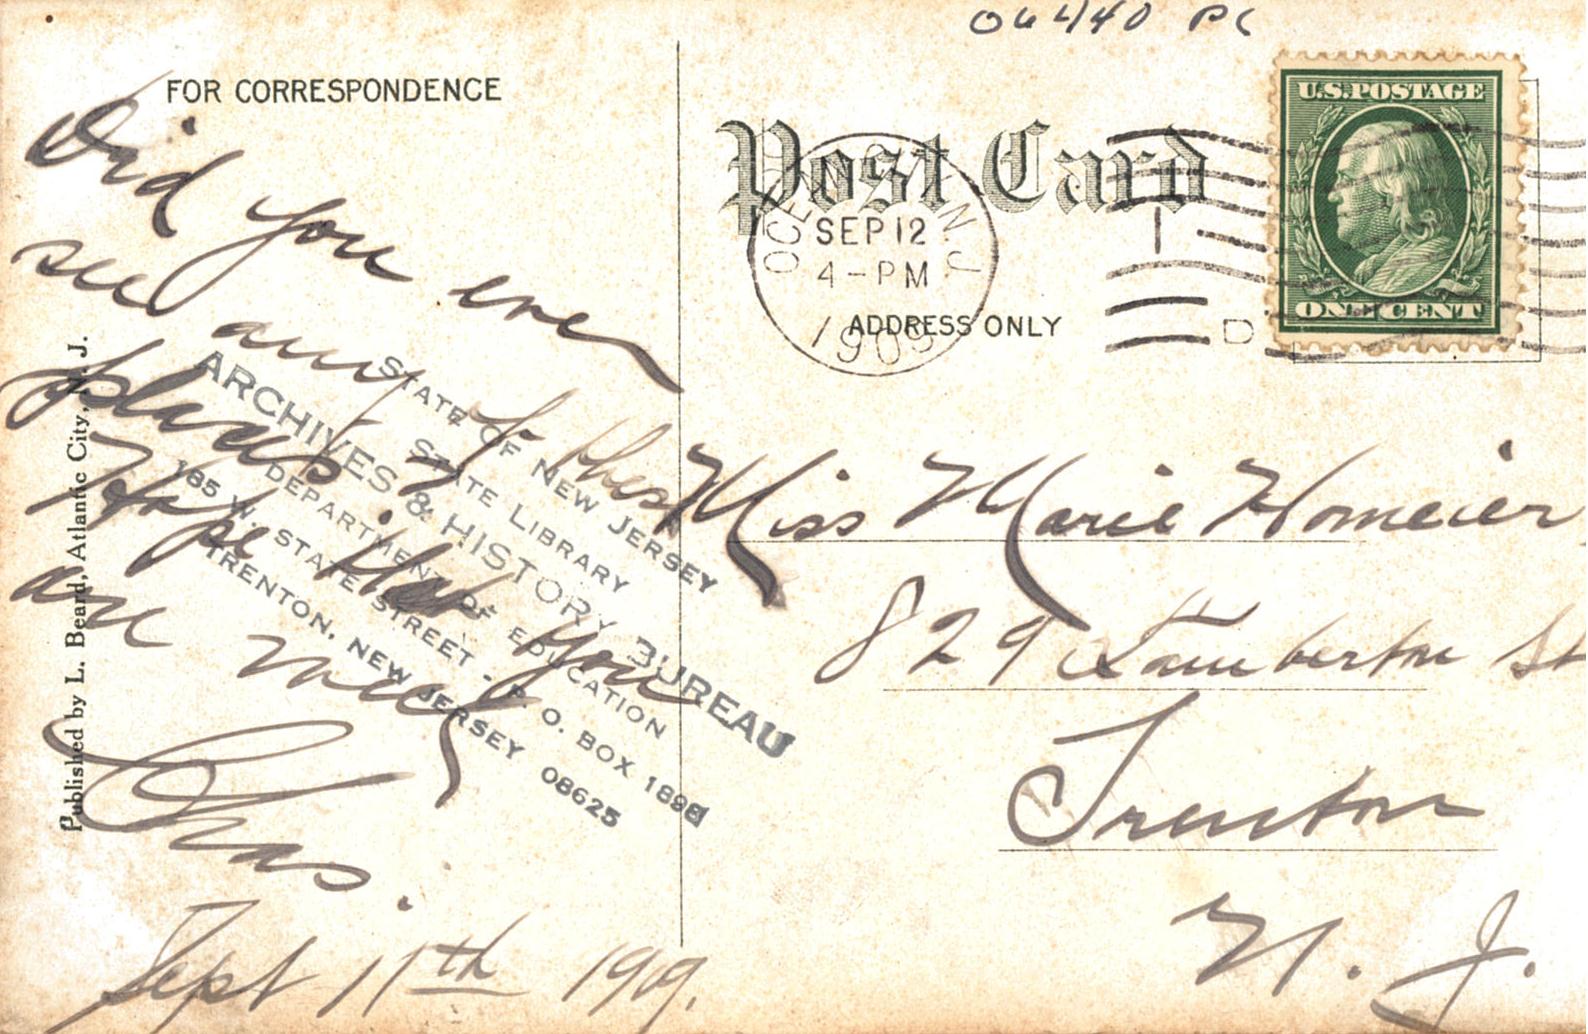 06440 PC
FOR CORRESPONDENCE
Did you ever
see any of these
places?
Hope that you
are well
Chas.
Sept 11th 1909.
Published by L. Beard, Atlantic City, N. J.
STATE OF NEW JERSEY
STATE LIBRARY
ARCHIVES & HISTORY BUREAU
DEPARTMENT OF EDUCATION
185 W. STATE STREET - P. O. BOX 1898
TRENTON, NEW JERSEY 08625
Post Card
OCEAN CITY N.J.
SEP 12
4-PM
1909
ADDRESS ONLY
U.S. POSTAGE
ONE CENT
D
Miss Marie Homeier
829 Lamberton St
Trenton
N. J.